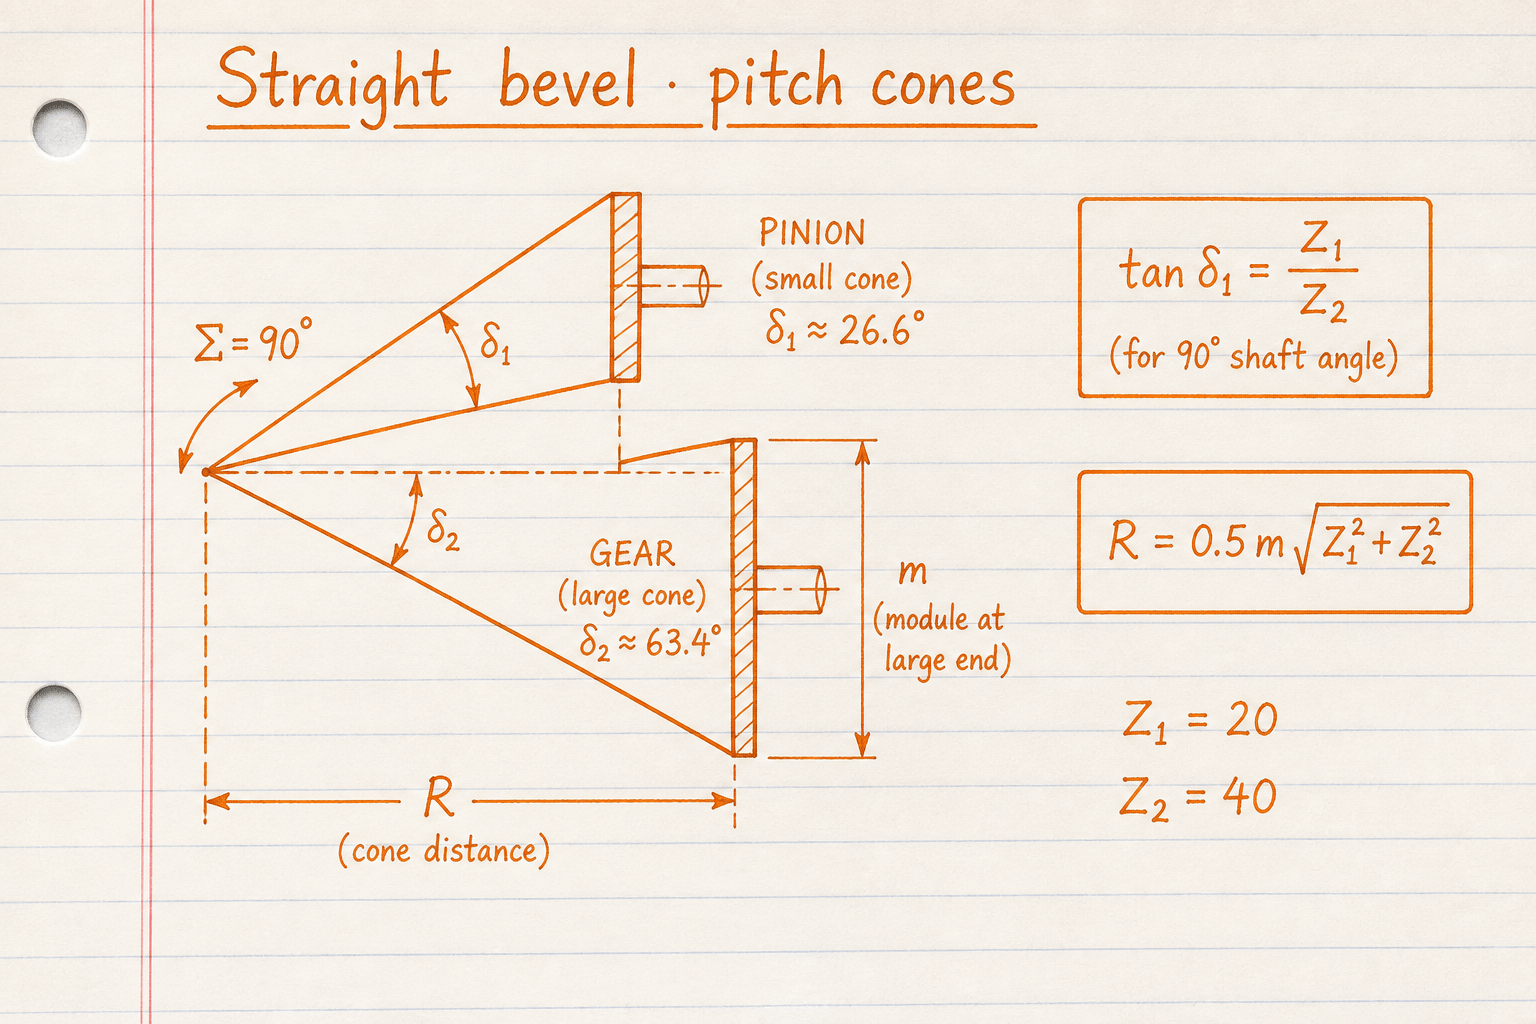 Straight bevel · pitch cones
PINION
(small cone)
δ₁ ≈ 26.6°
Σ = 90°
δ₁
tan δ₁ = Z₁/Z₂
(for 90° shaft angle)
δ₂
GEAR
(large cone)
δ₂ ≈ 63.4°
m
(module at
large end)
R = 0.5 m √(Z₁² + Z₂²)
Z₁ = 20
Z₂ = 40
R
(cone distance)